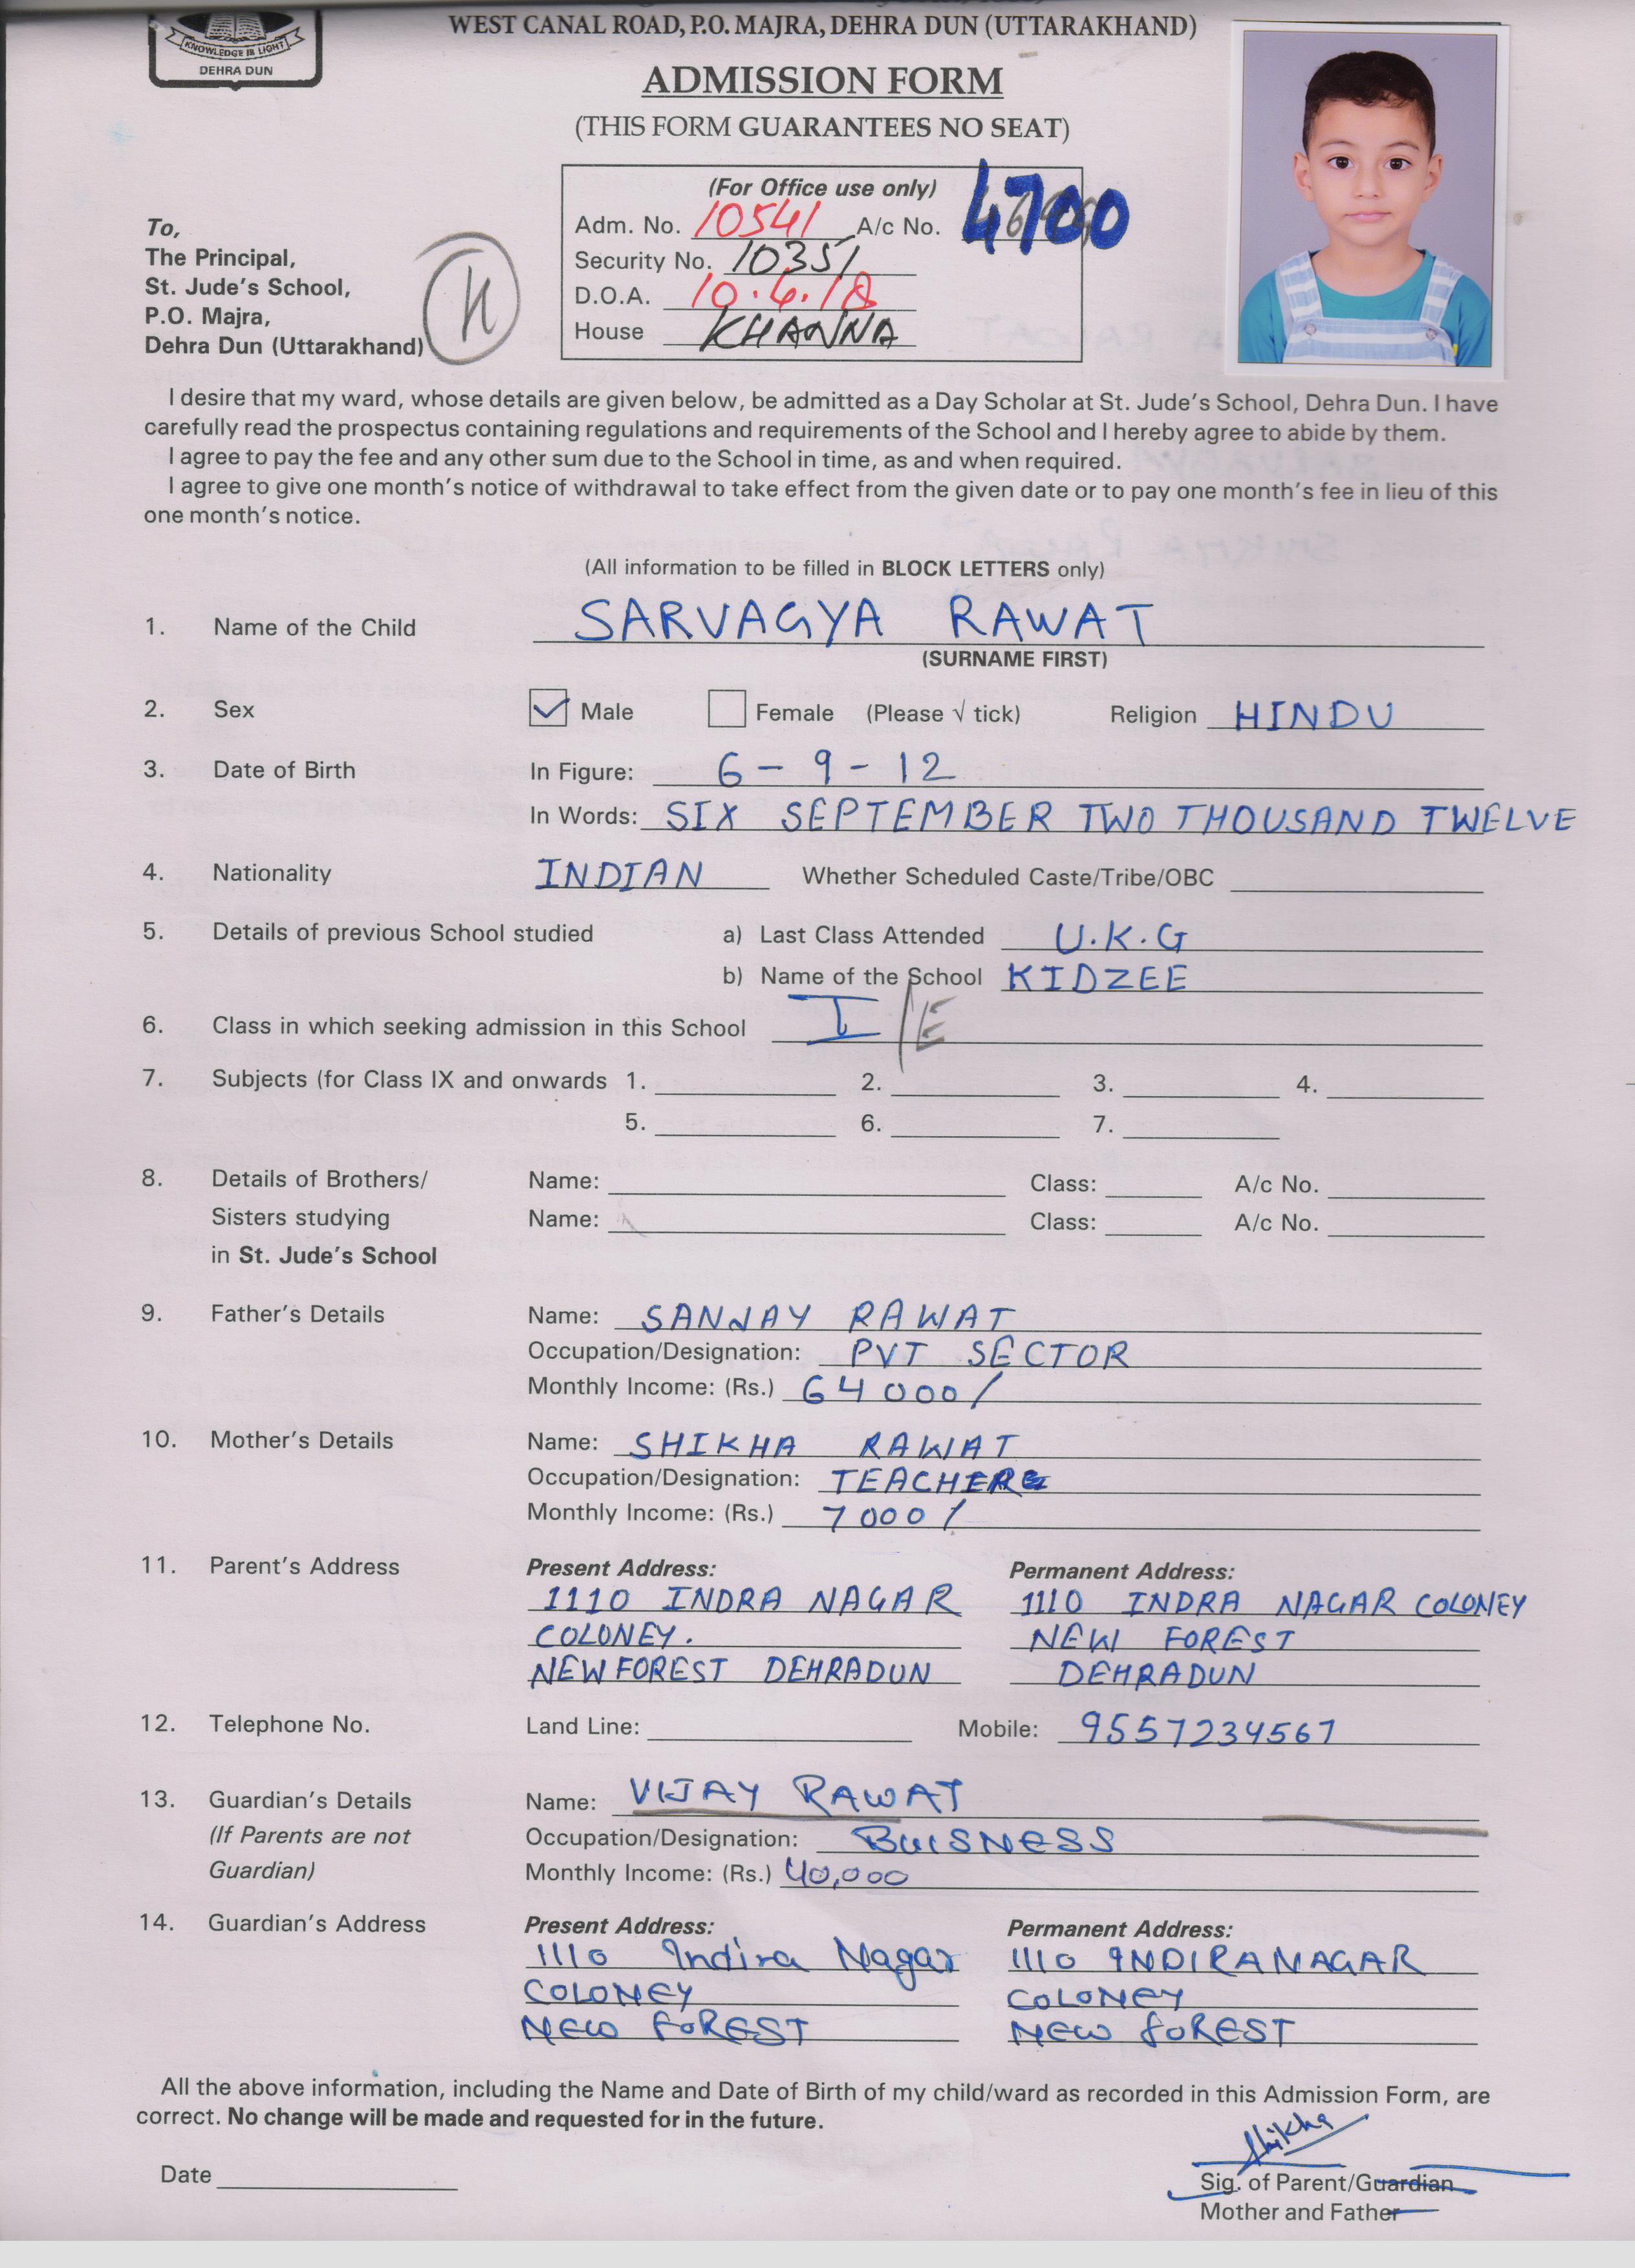 KNOWLEDGE IS LIGHT
DEHRA DUN
WEST CANAL ROAD, P.O. MAJRA, DEHRA DUN (UTTARAKHAND)
ADMISSION FORM
(THIS FORM GUARANTEES NO SEAT)
(For Office use only)
Adm. No. 10541 A/c No. 4700
Security No. 10351
D.O.A. 10.4.18
House KHANNA
To,
The Principal,
St. Jude's School,
P.O. Majra,
Dehra Dun (Uttarakhand)
K
I desire that my ward, whose details are given below, be admitted as a Day Scholar at St. Jude's School, Dehra Dun. I have
carefully read the prospectus containing regulations and requirements of the School and I hereby agree to abide by them.
I agree to pay the fee and any other sum due to the School in time, as and when required.
I agree to give one month's notice of withdrawal to take effect from the given date or to pay one month's fee in lieu of this
one month's notice.
(All information to be filled in BLOCK LETTERS only)
1. Name of the Child SARVAGYA RAWAT
(SURNAME FIRST)
2. Sex Male Female (Please √ tick) Religion HINDU
3. Date of Birth In Figure: 6-9-12
In Words: SIX SEPTEMBER TWO THOUSAND TWELVE
4. Nationality INDIAN Whether Scheduled Caste/Tribe/OBC
5. Details of previous School studied a) Last Class Attended U.K.G
b) Name of the School KIDZEE
6. Class in which seeking admission in this School I/E
7. Subjects (for Class IX and onwards 1. 2. 3. 4.
5. 6. 7.
8. Details of Brothers/ Name: Class: A/c No.
Sisters studying Name: Class: A/c No.
in St. Jude's School
9. Father's Details Name: SANJAY RAWAT
Occupation/Designation: PVT SECTOR
Monthly Income: (Rs.) 64000/
10. Mother's Details Name: SHIKHA RAWAT
Occupation/Designation: TEACHER
Monthly Income: (Rs.) 7000/
11. Parent's Address Present Address: Permanent Address:
1110 INDRA NAGAR 1110 INDRA NAGAR COLONEY
COLONEY. NEW FOREST
NEW FOREST DEHRADUN DEHRADUN
12. Telephone No. Land Line: Mobile: 9557234567
13. Guardian's Details Name: VIJAY RAWAT
(If Parents are not Occupation/Designation: BUISNESS
Guardian) Monthly Income: (Rs.) 40,000
14. Guardian's Address Present Address: Permanent Address:
1110 Indira Nagar 1110 INDIRA NAGAR
COLONEY COLONEY
NEW FOREST NEW FOREST
All the above information, including the Name and Date of Birth of my child/ward as recorded in this Admission Form, are
correct. No change will be made and requested for in the future.
Shikha
Date
Sig. of Parent/Guardian
Mother and Father